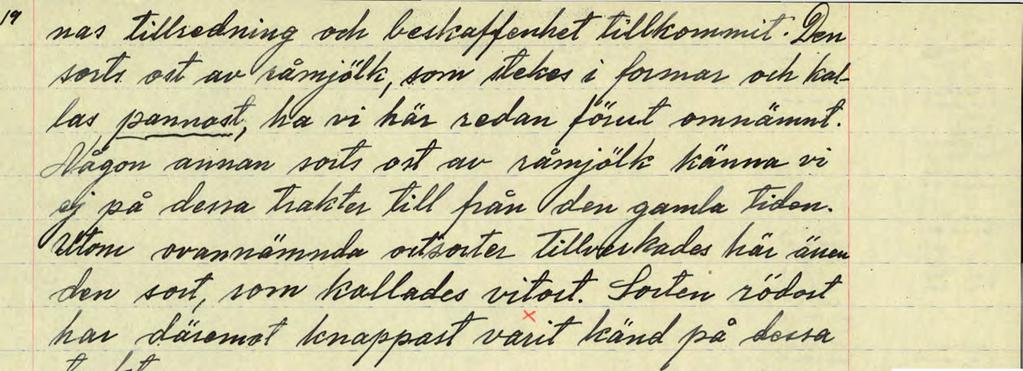 19
nas tillredning och beskaffenhet tillkommit. Den
sorts ost av råmjölk, som stekes i formar och kal-
las pannost, ha vi här redan förut omnämnt.
Någon annan sorts ost av råmjölk känna vi
ej på dessa trakter till från den gamla tiden.
Utom ovannämnda ostsorter tillverkades här även
den sort, som kallades vitost. Sorten rödost
har däremot knappast varit känd på dessa